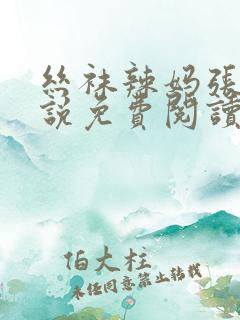 絲袜辣妈張
說免費閱讀
伯大柱
未经同意禁止转载